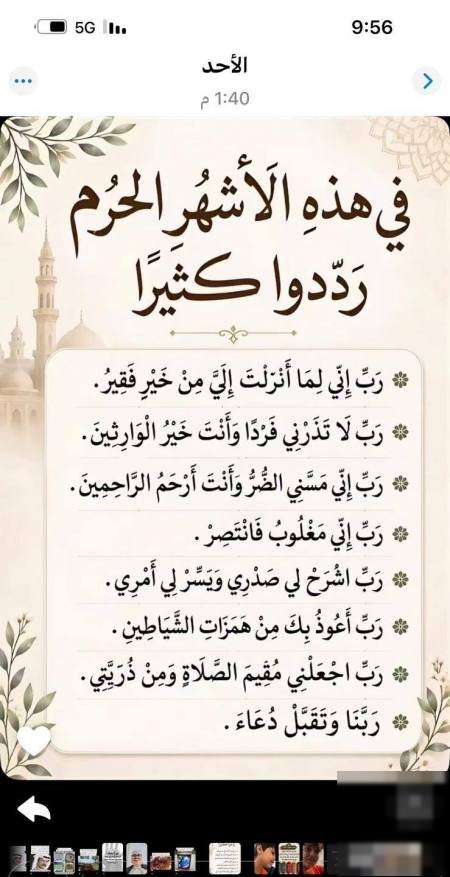 5G
9:56
الأحد
1:40 م
في هذهِ الأَشهُرِ الحرُم
رَدّدوا كثيرًا
رَبِّ إِنّي لِمَا أَنْزَلْتَ إِلَيَّ مِنْ خَيْرٍ فَقِيرُ.
رَبِّ لَا تَذَرْنِي فَرْدًا وَأَنْتَ خَيْرُ الْوَارِثِينَ.
رَبِّ إِنّي مَسَّنِي الضُّرُّ وَأَنْتَ أَرْحَمُ الرَّاحِمِينَ.
رَبِّ إِنّي مَغْلُوبُ فَانْتَصِرْ.
رَبِّ اشْرَحْ لي صَدْرِي وَيَسِّرْ لِي أَمْرِي.
رَبِّ أَعُوذُ بِكَ مِنْ هَمَزَاتِ الشَّيَاطِينِ.
رَبِّ اجْعَلْنِي مُقِيمَ الصَّلَاةِ وَمِنْ ذُرِّيَّتِي.
رَبَّنَا وَتَقَبَّلْ دُعَاءَ.